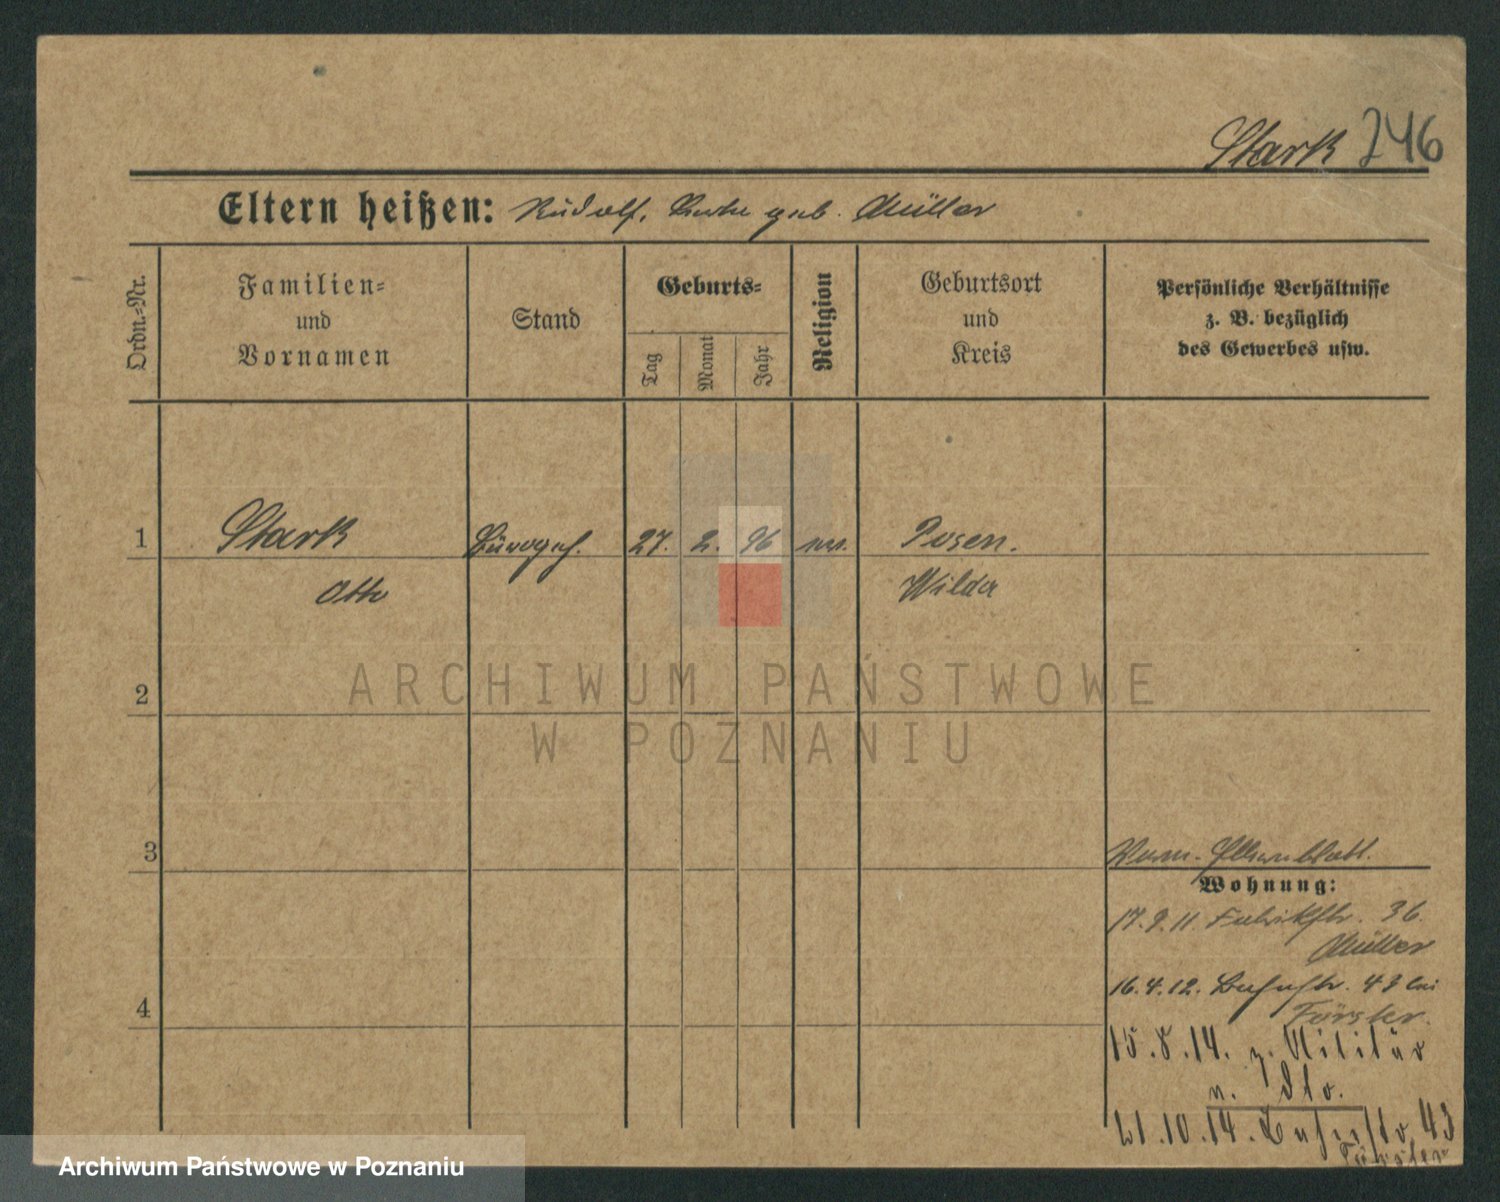 Stark 246
Eltern heißen: Rudolf, geb. Müller
Ordn.-Nr.
Familien-
und
Vornamen
Stand
Geburts-
Tag
Monat
Jahr
Religion
Geburtsort
und
Kreis
Persönliche Verhältnisse
z. B. bezüglich
des Gewerbes usw.
1 Stark Bürogeh. 27. 2. 96 ev. Posen.
Otto Wilda
ARCHIWUM PAŃSTWOWE
W POZNANIU
2
3
Elternblatt.
Wohnung:
17.9.11 Fabrikstr. 36.
Müller
16.4.12. 43 bei
Förster.
4
15.8.14. z. Militär
n.
21.10.14. 43
Förster
Archiwum Państwowe w Poznaniu